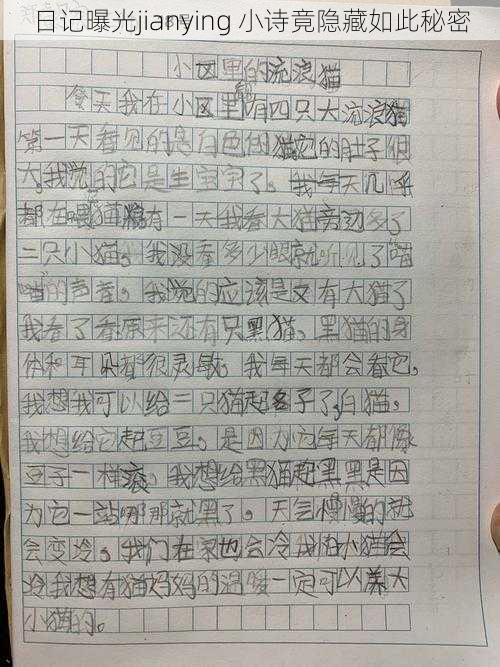 日记曝光jianying 小诗竟隐藏如此秘密
小区里的流浪猫
今天我在小区里有四只大流浪猫
第一天看见的是白色的猫它的肚子很
大,我觉的它是生宝宝了。我每天几乎
都在喂猫粮有一天我看大猫旁边多了
二只小猫。我没看多少眼就听见了喵
喵的声音。我觉的应该是又有大猫了
我看了看原来还有只黑猫。黑猫的身
体和耳朵都很灵敏。我每天都会看它,
我想我可以给二只猫起名子了,白猫。
我想给它起豆豆。是因为它每天都像
豆子一样滚。我想给黑猫起黑黑是因
为它一站哪那就黑了。天气慢慢的就
会变冷。我们在家也会冷我怕小猫会
冷我想有猫妈妈的温暖一定可以养大
小猫的。